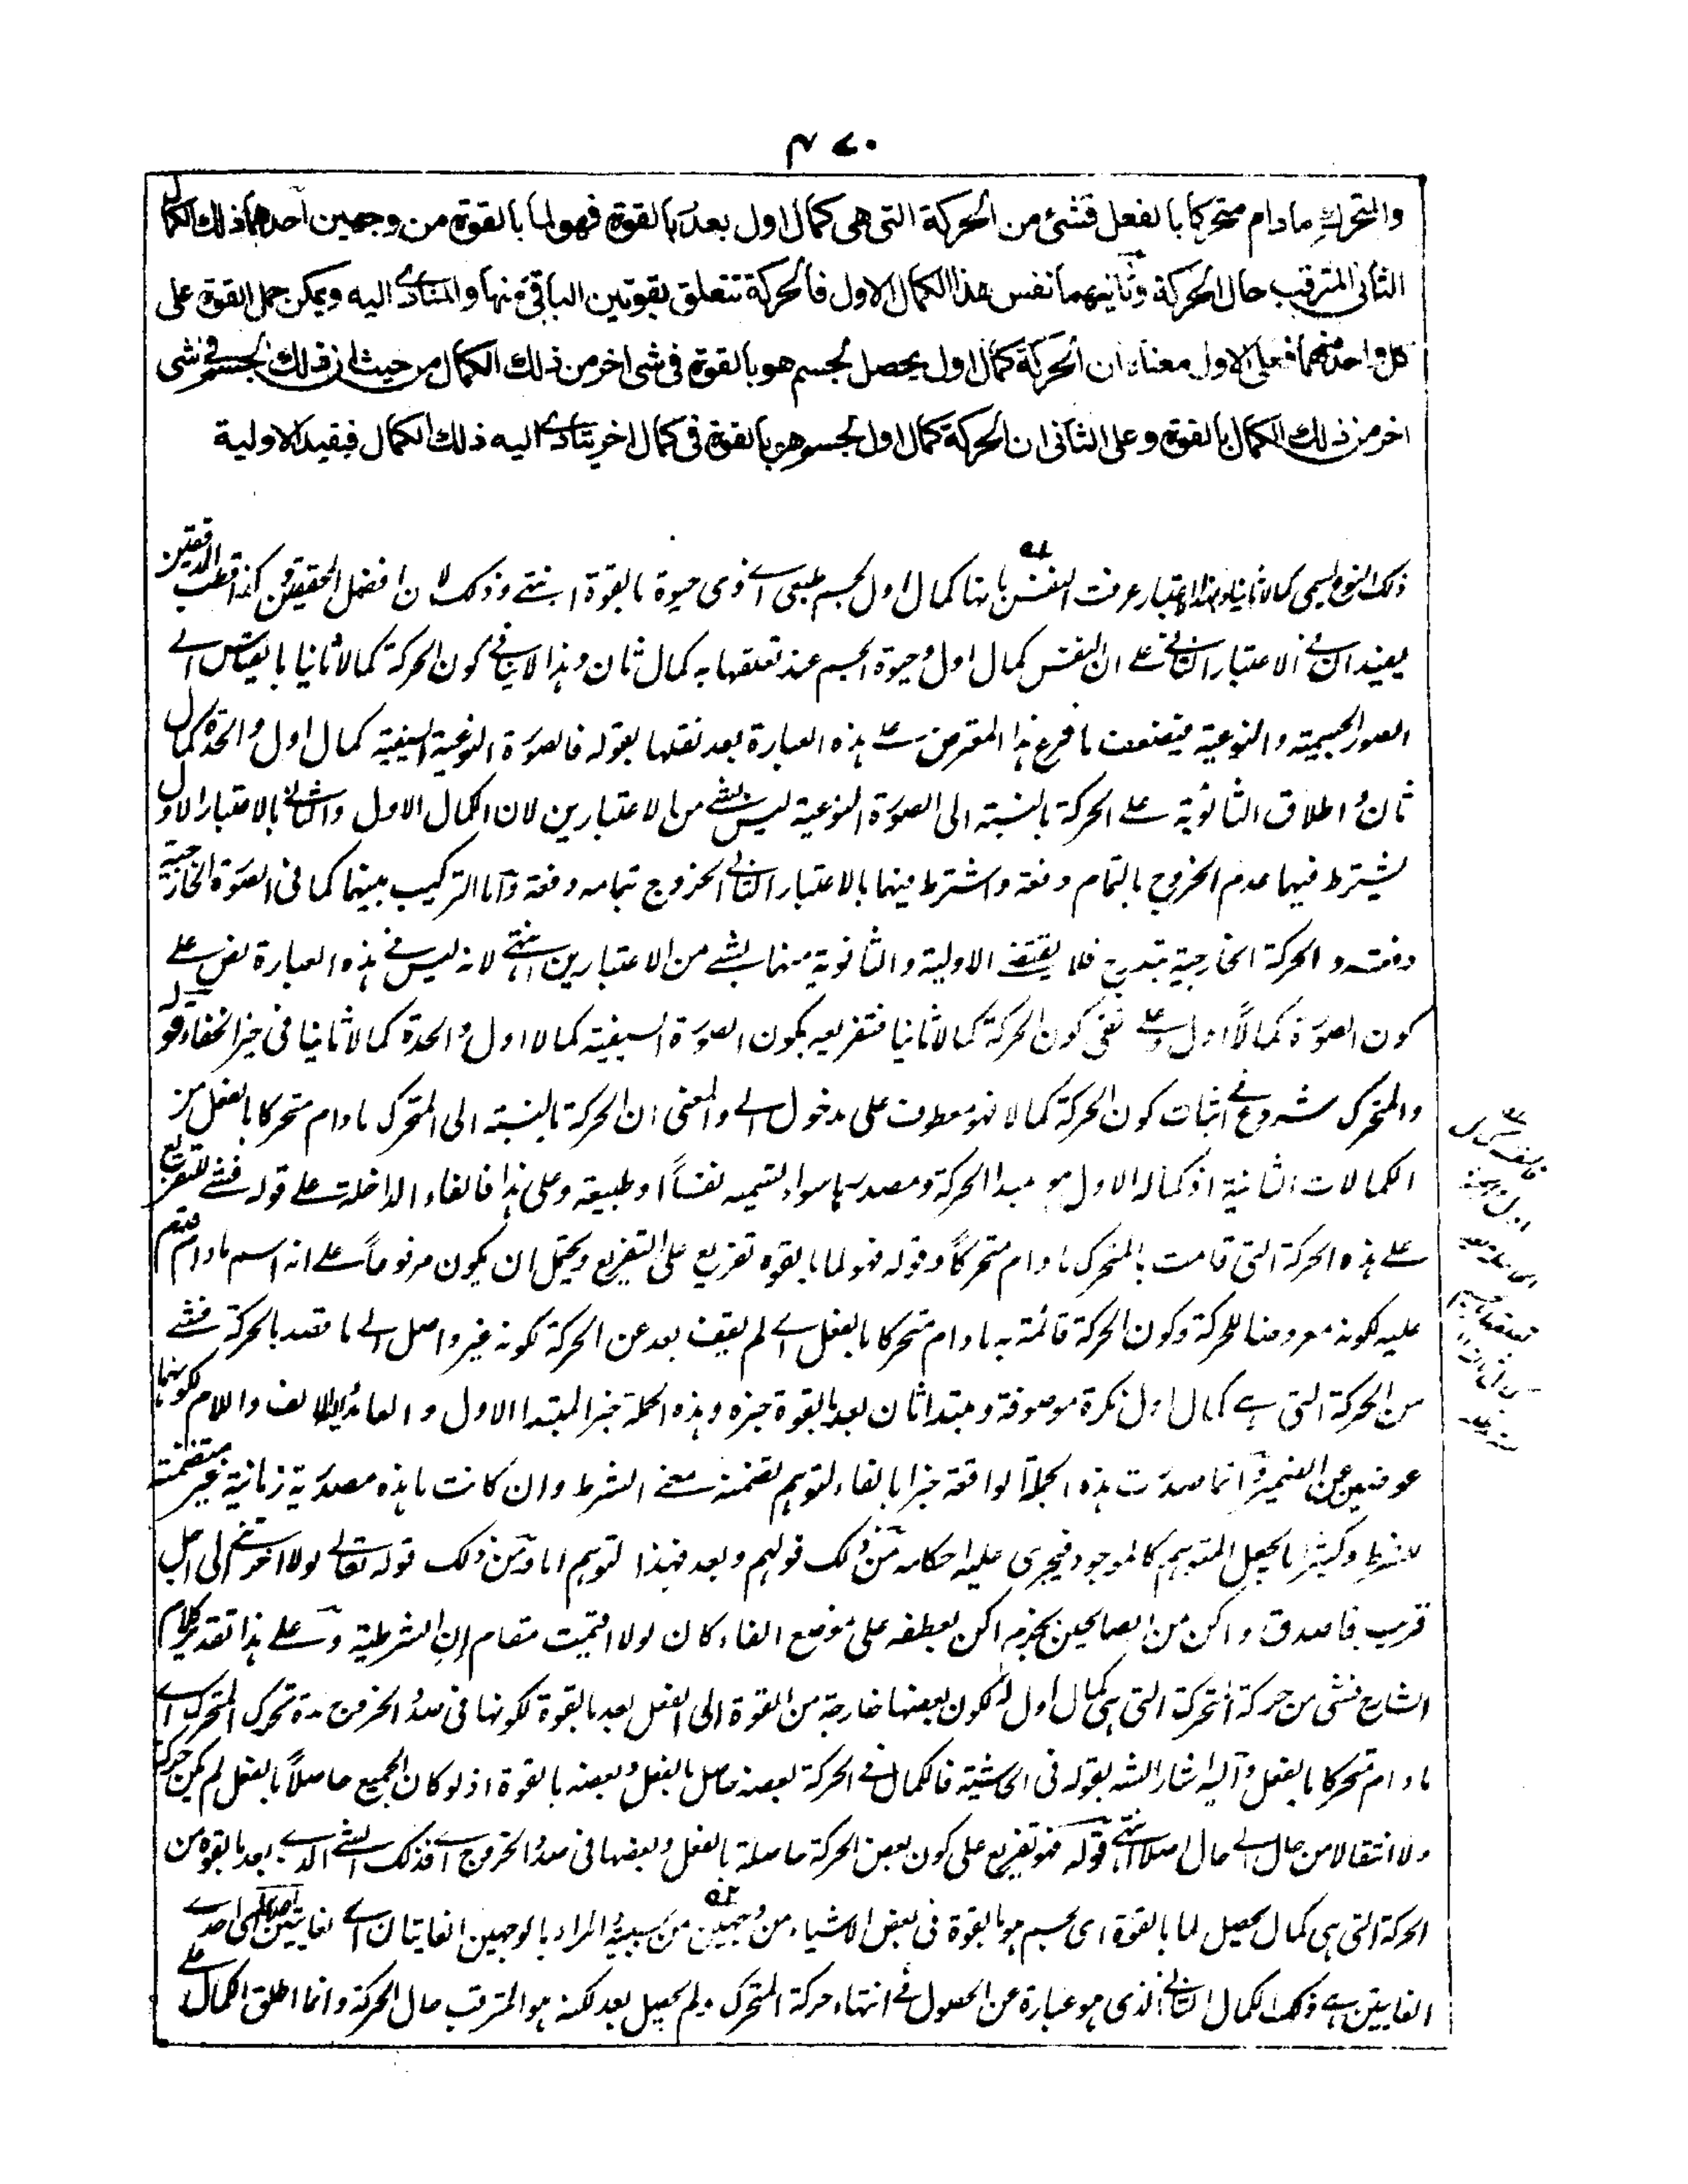 ٤٧٠
والمتحرك ما دام متحركا بالفعل فشئ من الحركة التى هى كمال اول بعد بالقوة فهو لما بالقوة من وجهين احدهما ذلك الكمال
الثانى المترقب حال الحركة وثانيهما نفس هذا الكمال الاول فالحركة تتعلق بقوتين الباقى منها والمتادى اليه ويمكن حمل القوة على
كل واحد منهما فعلى الاول معناه ان الحركة كمال اول يحصل لجسم هو بالقوة فى شى اخر من ذلك الكمال من حيث ان ذلك الجسم فى شى
اخر من ذلك الكمال بالقوة وعلى الثانى ان الحركة كمال اول لجسم هو بالقوة فى كمال اخر يتادى اليه ذلك الكمال فبقيد الاولية
ذلك النوع ليسمى كمالا ثانيا وبهذا الاعتبار عرفت النفس بانها كمال اول لجسم طبيعى اے ذى حيوة بالقوة انتهے وذلك لان افضل المحققين كذا قطب المدققين
يفيد ان فى الاعتبار الثانى على ان النفس كمال اول وحيوة الجسم عند تعلقها به كمال ثان وهذا لا ينافى كون الحركة كمالا ثانيا بالقياس الے
الصور الجسمية والنوعية فيضعف ما فرع هذا المعترض علے هذه العبارة بعد نقلها بقوله فالصورة النوعية السيفية كمال اول والحدة كمال
ثان واطلاق الثانوية علے الحركة بالنسبة الى الصورة النوعية ليس بشے من الاعتبارين لان الكمال الاول والثانى بالاعتبار الاول
يشترط فيها عدم الخروج بالتمام دفعة واشترط فيها بالاعتبار الثانى الخروج بتمامه دفعة واما التركيب بينهما كما فى الصورة الخارجية
دفعة والحركة الخارجية بتدريج فلا يقتضے الاولية والثانوية منهما بشے من الاعتبارين انتهے لانه ليس فے هذه العبارة نص علے
كون الصورة كمالا اول وعلے نفى كون الحركة كمالا ثانيا فتفريعه بكون الصورة السيفية كمالا اول والحدة كمالا ثانيا فى حيز الخفاء قوله
والمتحرك شروع فے اثبات كون الحركة كمالا فهو معطوف على مدخول الے والمعنى ان الحركة بالنسبة الى المتحرك ما دام متحركا بالفعل من
الكمالات الثانية اذ كماله الاول هو مبدا الحركة ومصدرها سواء لتسميه نفسا او طبيعة وعلى هذا فالفاء الداخلة علے قوله فشے للتفريع
علے هذه الحركة التى قامت بالمتحرك ما دام متحركا وقوله فهو لما بالقوة تفريع على التفريع ويحتمل ان يكون مرفوعا علے انه اسم ما دام قدم
عليه لكونه معروضا للحركة وكون الحركة قائمة به ما دام متحركا بالفعل اے لم يقف بعد عن الحركة لكونه غير واصل الے ما قصد بالحركة فشے
من الحركة التى هے كمال اول نكرة موصوفة ومبتدا ثان بعد بالقوة خبره وهذه الجملة خبر المبتدا الاول والعائد الالف واللام لكونهما
عوضين عن الضمير وانما صدرت هذه الجملة الواقعة خبرا بالفاء لتوهم تضمنه معنے الشرط وان كانت ما هذه مصدرية زمانية غير متضمنة
للشرط وكثيرا ما يجعل المتوهم كالموجود فيجرى عليه احكامه من ذلك قولهم وبعد فهذا لتوهم اما ومن ذلك قوله تعالے لولا اخرتنے الى اجل
قريب فاصدق واكن من الصالحين بجزم اكن بعطفه على موضع الفاء كان لولا اقيمت مقام إن الشرطية وعلے هذا تقدير كلام
الشارح فشى من حركة المتحركة التى هى كمال اول لكون بعضها خارجة من القوة الى الفعل بعد بالقوة لكونها فى صدد الخروج مدة تحرك المتحرك اے
ما دام متحركا بالفعل واليه اشار الشه بقوله فى الحاشية فالكمال فے الحركة بعضه حاصل بالفعل وبعضه بالقوة اذ لو كان الجميع حاصلا بالفعل لم يكن حركة
ولا انتقالا من حال الے حال اصلا انتهے قوله فهو تفريع على كون بعض الحركة حاصلة بالفعل وبعضها فى صدد الخروج اے فذلك الشے الذے بعد بالقوة من
الحركة التى هى كمال يحصل لما بالقوة اى لجسم هو بالقوة فى بعض الاشياء من وجهين من سببية المراد بالوجهين الغايتان اے لغايتين احدے
الغايتين هے ذلك الكمال الثانے الذى هو عبارة عن الحصول فے انتهاء حركة المتحرك ولم يحصل بعد لكنه هو المترقب حال الحركة وانما اطلق الكمال علے